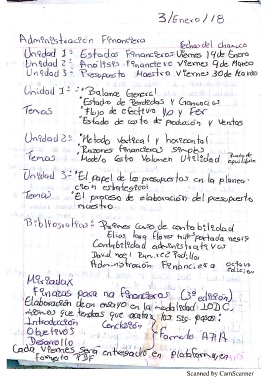 3/Enero/18
Administración Financiera
fechas del
Unidad 1: Estados Financieros Viernes 19 de Enero
Unidad 2: Análisis Financiero Viernes 9 de Marzo
Unidad 3: Presupuesto Maestro Viernes 30 de Marzo
Unidad 1: • Balance General
• Estado de Perdidas y Ganancias
Temas • Flujo de efectivo
Estado de costo de producción y ventas
Unidad 2: • Método vertical y horizontal
• Razones financieras simples
Temas • Modelo Costo Volumen Utilidad Punto de equilibrio
Unidad 3: • El papel de los presupuestos en la planea-
ción estratégica
Temas • El proceso de elaboración del presupuesto
maestro.
Bibliografías: Primer curso de contabilidad
Elias Lara Flores portada negra
Contabilidad administrativa
David Noel Ramírez Padilla
Administración Financiera octava edición
Finanzas para no financieros (3ª edición)
Elaboración de un ensayo en la modalidad
Introducción Conclusión
Objetivos Formato APA
Desarrollo
Cada viernes será entregado en plataforma en
formato PDF
Scanned by CamScanner